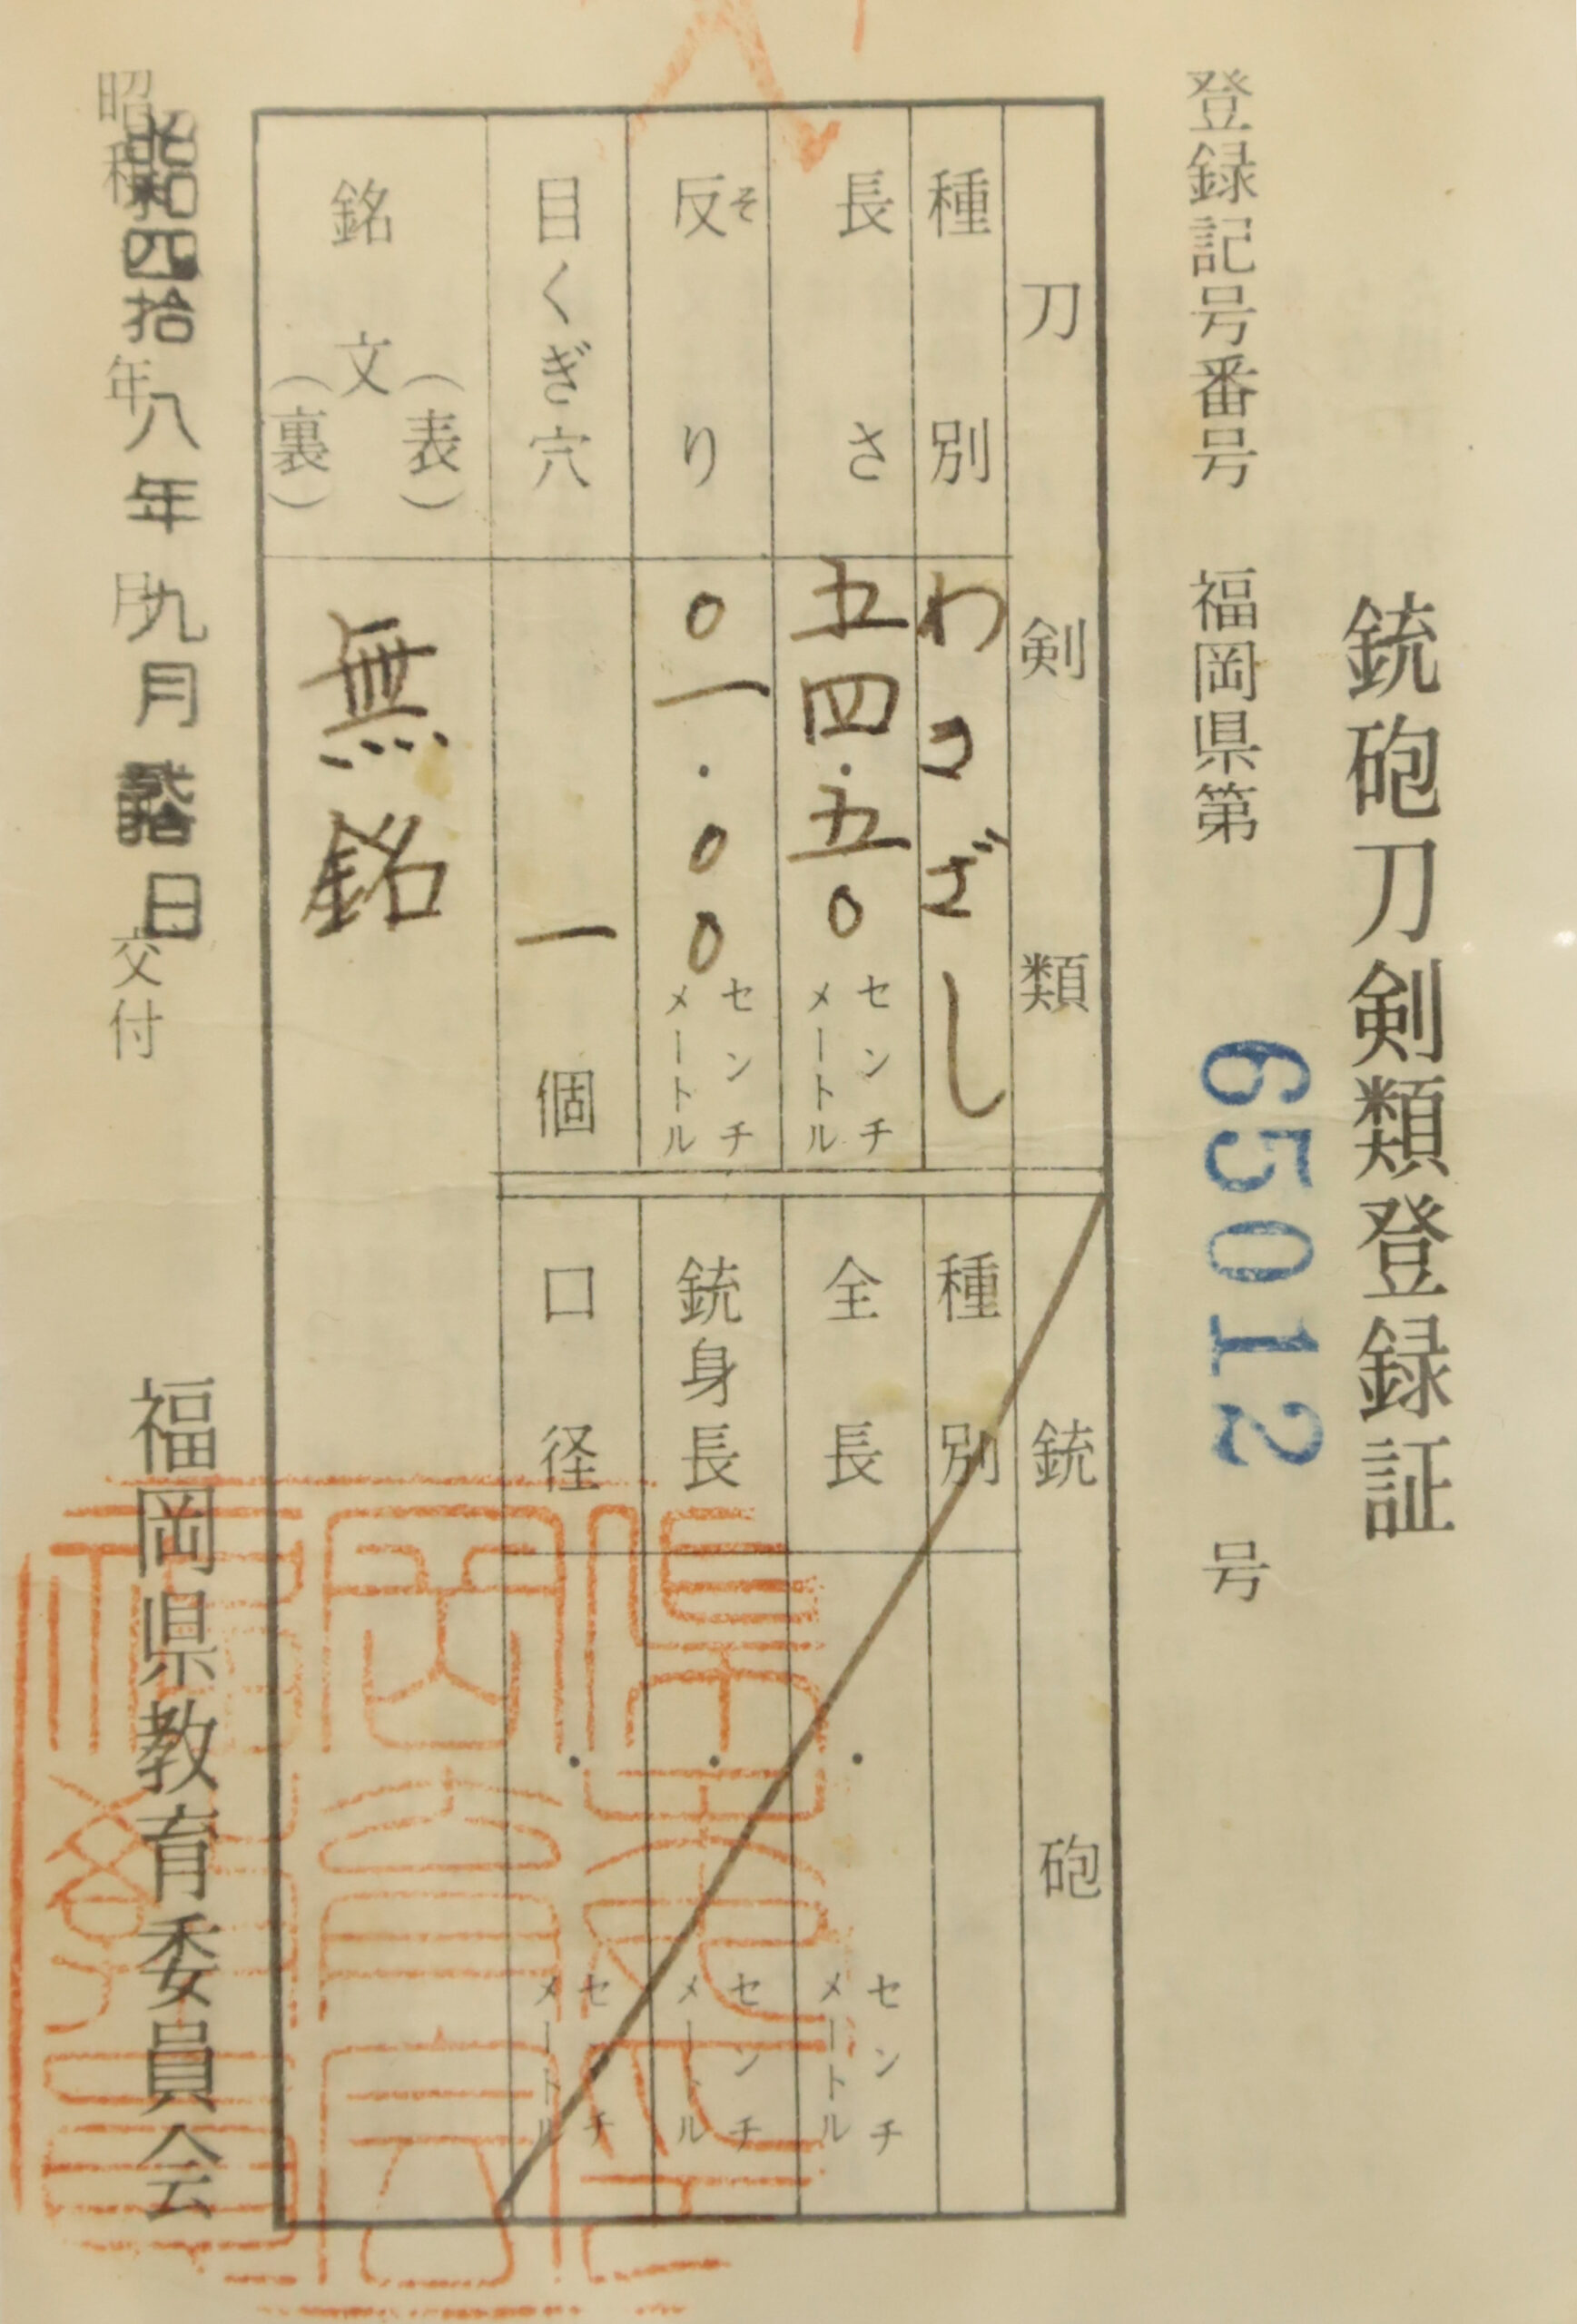 銃砲刀剣類登録証
登録記号番号 福岡県第 65012 号
刀剣類
種別 わきざし
長さ 五四.五〇 センチメートル
反り 〇一.〇〇 センチメートル
そ
目くぎ穴 一個
銘文(表)(裏) 無銘
銃砲
種別
全長 . センチメートル
銃身長 . センチメートル
口径 . センチメートル
昭和 年 月 交付
昭和四拾八年九月 日
福岡県教育委員会